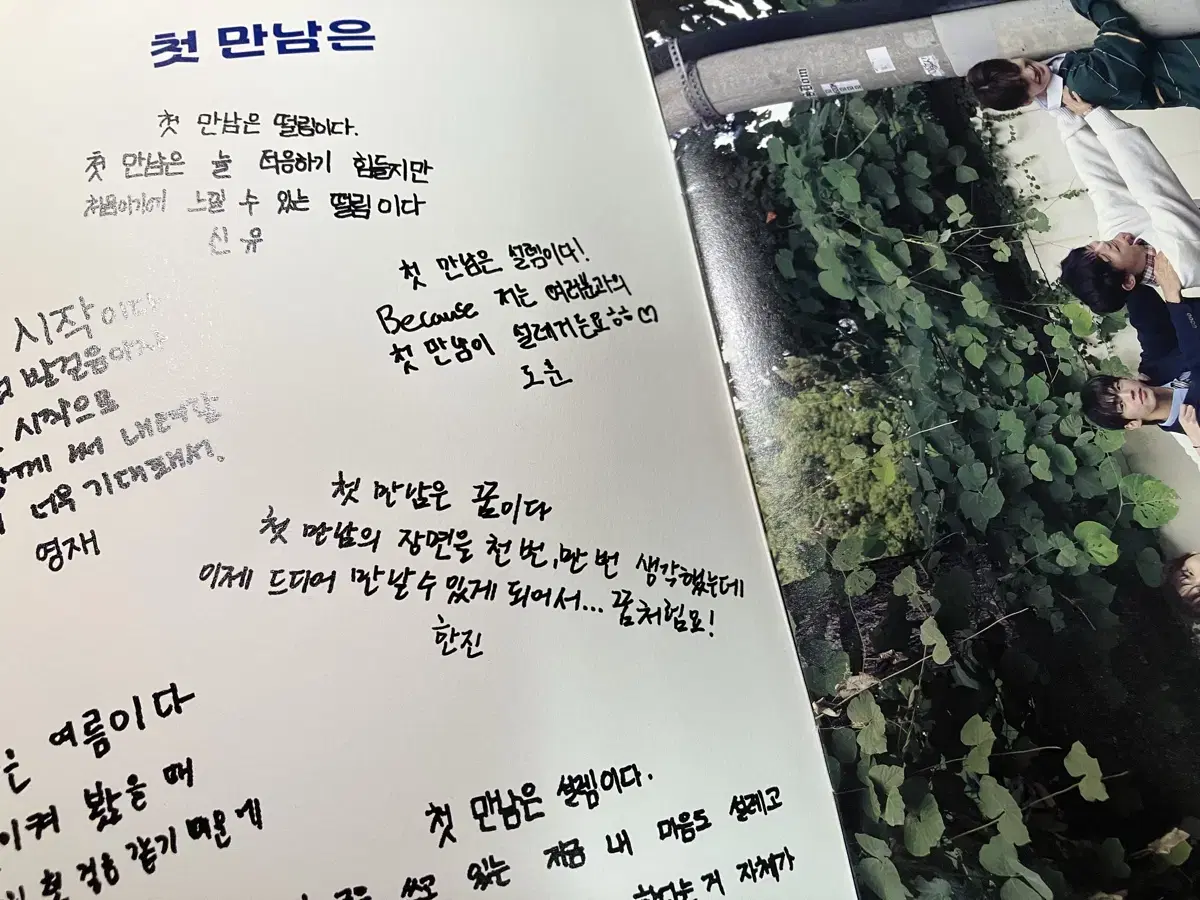 첫 만남은
첫 만남은 떨림이다.
첫 만남은 늘 적응하기 힘들지만
처음이기에 느낄 수 있는 떨림이다
신유
첫 만남은 설렘이다!
Because 저는 여러분과의
첫 만남이 설레거든요ㅎㅎ♡
도훈
시작이다
발걸음이자
시작으로
함께 써 내려갈
너무 기대돼서.
영재
첫 만남은 꿈이다
첫 만남의 장면을 천 번, 만 번 생각했는데
이제 드디어 만날 수 있게 되어서... 꿈처럼요!
한진
은 여름이다
봤을 때
걸음 같기 때문에
첫 만남은 설렘이다.
쓰고 있는 지금 내 마음도 설레고
한다는 거 자체가